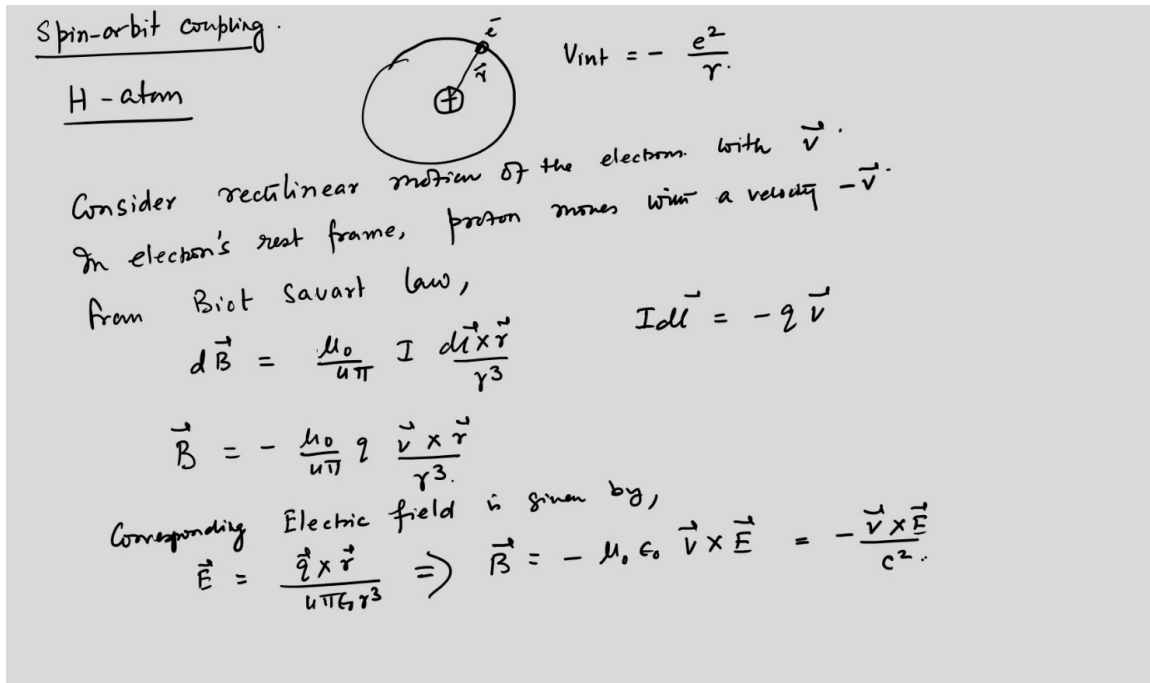 Spin-orbit coupling.
H-atom
e⁻
r⃗
+
Vint = - e²/r.
Consider rectilinear motion of the electron with v⃗.
In electron's rest frame, proton moves with a velocity -v⃗.
from Biot Savart law,
dB⃗ = μ₀/4π I dl⃗ x r⃗/r³
Idl⃗ = - q v⃗
B⃗ = - μ₀/4π q v⃗ x r⃗/r³.
Corresponding Electric field is given by,
E⃗ = q⃗ x r⃗/4πϵ₀r³ ⇒ B⃗ = - μ₀ ϵ₀ v⃗ x E⃗ = - v⃗ x E⃗/c².